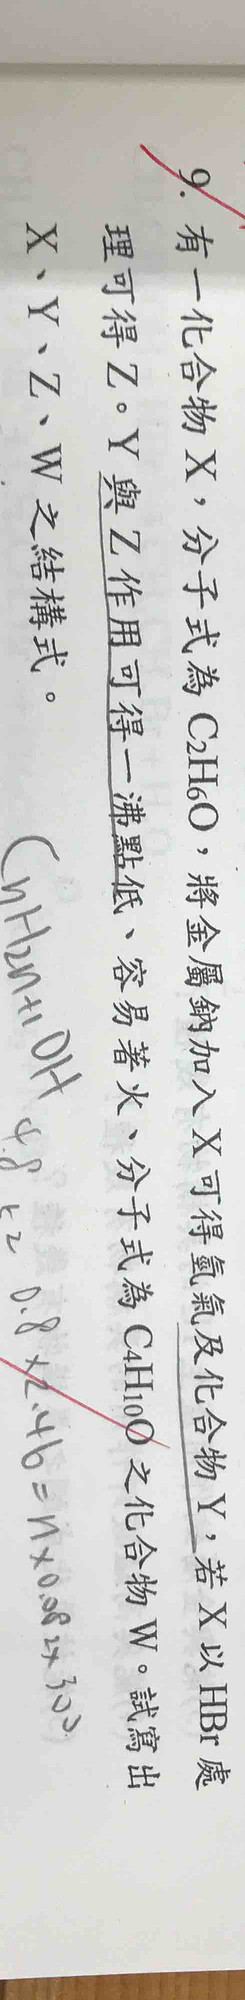 9. 有一化合物 X，分子式為 C₂H₆O，將金屬鈉加入 X 可得氫氣及化合物 Y，若 X 以 HBr 處
理可得 Z。Y 與 Z 作用可得一沸點低、容易著火、分子式為 C₄H₁₀O 之化合物 W。試寫出
X、Y、Z、W 之結構式。
CnH2n+1OH
0.8×2.46=n×0.082×300